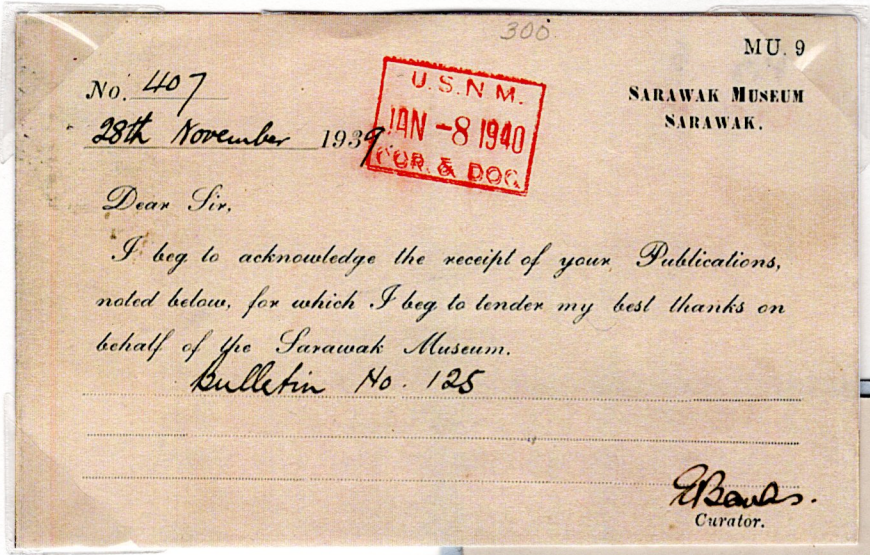 300
MU. 9
No. 407
SARAWAK MUSEUM
SARAWAK.
28th November 1939
U.S.N.M.
JAN -8 1940
COR. & DOC.
Dear Sir,
I beg to acknowledge the receipt of your Publications,
noted below, for which I beg to tender my best thanks on
behalf of the Sarawak Museum.
Bulletin No. 125
E Banks.
Curator.